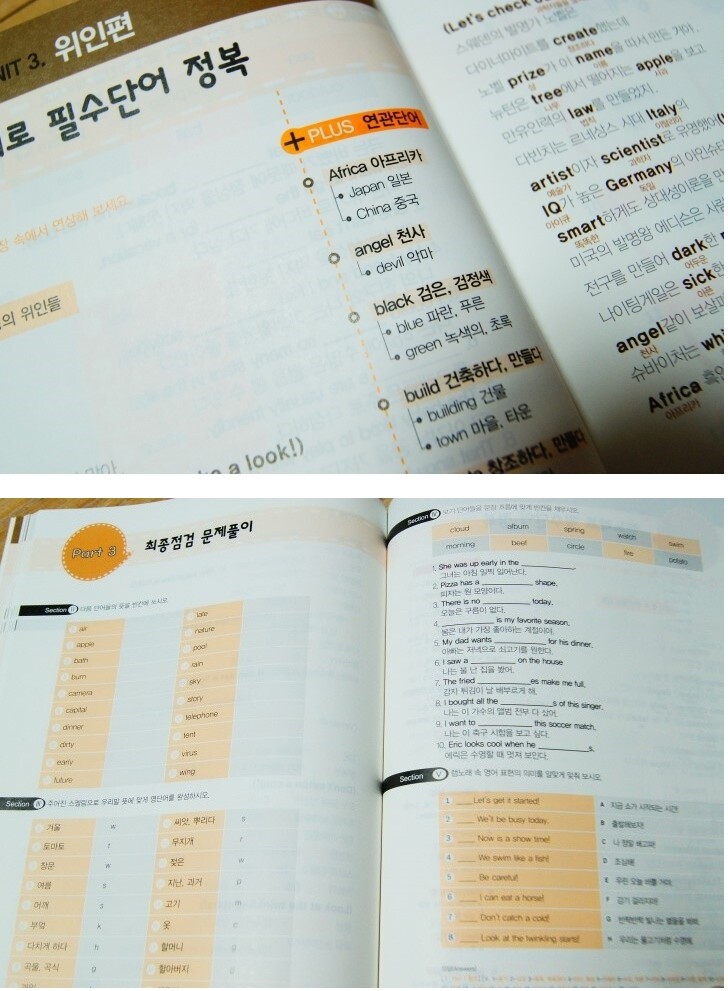 UNIT 3. 위인편
필수단어 정복
속에서 연상해 보세요.
의 위인들
a look!)
+ PLUS 연관단어
Africa 아프리카
Japan 일본
China 중국
angel 천사
devil 악마
black 검은, 검정색
blue 파란, 푸른
green 녹색의, 초록
build 건축하다, 만들다
building 건물
town 마을, 타운
창조하다, 만들다
(Let's check
스웨덴의 발명가 노벨은
다이너마이트를 create했는데
노벨 prize가 이 name을 따서 만든 거야.
상 이름
뉴턴은 tree에서 떨어지는 apple을 보고
나무 사과
만유인력의 law를 만들었지.
법칙
다빈치는 르네상스 시대 Italy의
이탈리아
artist이자 scientist로 유명했어
예술가 과학자
IQ가 높은 Germany의 아인슈타
아이큐 독일
smart하게도 상대성이론을
똑똑한
미국의 발명왕 에디슨은
전구를 만들어 dark한
어두운
나이팅게일은 sick한
아픈
angel같이 보살
천사
슈바이처는 wh
Africa 흑인
아프리카
Part 3 최종점검 문제풀이
Section 다음 단어들의 뜻을 빈칸에 쓰시오.
air late
apple nature
bath pool
burn rain
camera sky
capital story
dinner telephone
dirty tent
early virus
future wing
Section 주어진 스펠링으로 우리말 뜻에 맞게 영단어를 완성하시오.
거울 w 씨앗, 뿌리다 s
토마토 t 무지개 r
창문 w 젖은 w
여름 s 지난, 과거 p
어깨 s 고기 m
부엌 k 옷 c
다치게 하다 h 할머니 g
곡물, 곡식 g 할아버지 g
Section 보기 단어들을 문장 흐름에 맞게 빈칸을 채우시오.
cloud album spring watch swim
morning beef circle fire potato
1. She was up early in the ____.
그녀는 아침 일찍 일어난다.
2. Pizza has a ____ shape.
피자는 원 모양이다.
3. There is no ____ today.
오늘은 구름이 없다.
4. ____ is my favorite season.
봄은 내가 가장 좋아하는 계절이야.
5. My dad wants ____ for his dinner.
아빠는 저녁으로 쇠고기를 원한다.
6. I saw a ____ on the house
나는 불 난 집을 봤어.
7. The fried ____es make me full.
감자 튀김이 날 배부르게 해.
8. I bought all the ____s of this singer.
나는 이 가수의 앨범 전부 다 샀어.
9. I want to ____ this soccer match.
나는 이 축구 시합을 보고 싶다.
10. Eric looks cool when he ____s.
에릭은 수영할 때 멋져 보인다.
Section V 랩노래 속 영어 표현의 의미를 알맞게 맞춰 보시오.
1 ____ Let's get it started! A 지금 쇼가 시작되는 시간!
2 ____ We'll be busy today. B 출발해보자!
3 ____ Now is a show time! C 나 정말 배고파!
4 ____ We swim like a fish! D 조심해!
5 ____ Be careful! E 우린 오늘 바쁠 거야.
6 ____ I can eat a horse! F 감기 걸리지마!
7 ____ Don't catch a cold! G 반짝반짝 빛나는 별들을 봐봐.
8 ____ Look at the twinkling starts! H 우리는 물고기처럼 수영해.